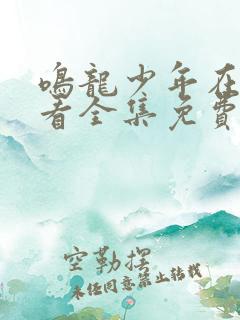 鳴龍少年在
看全集免費
空勒摆
未经同意禁止转载